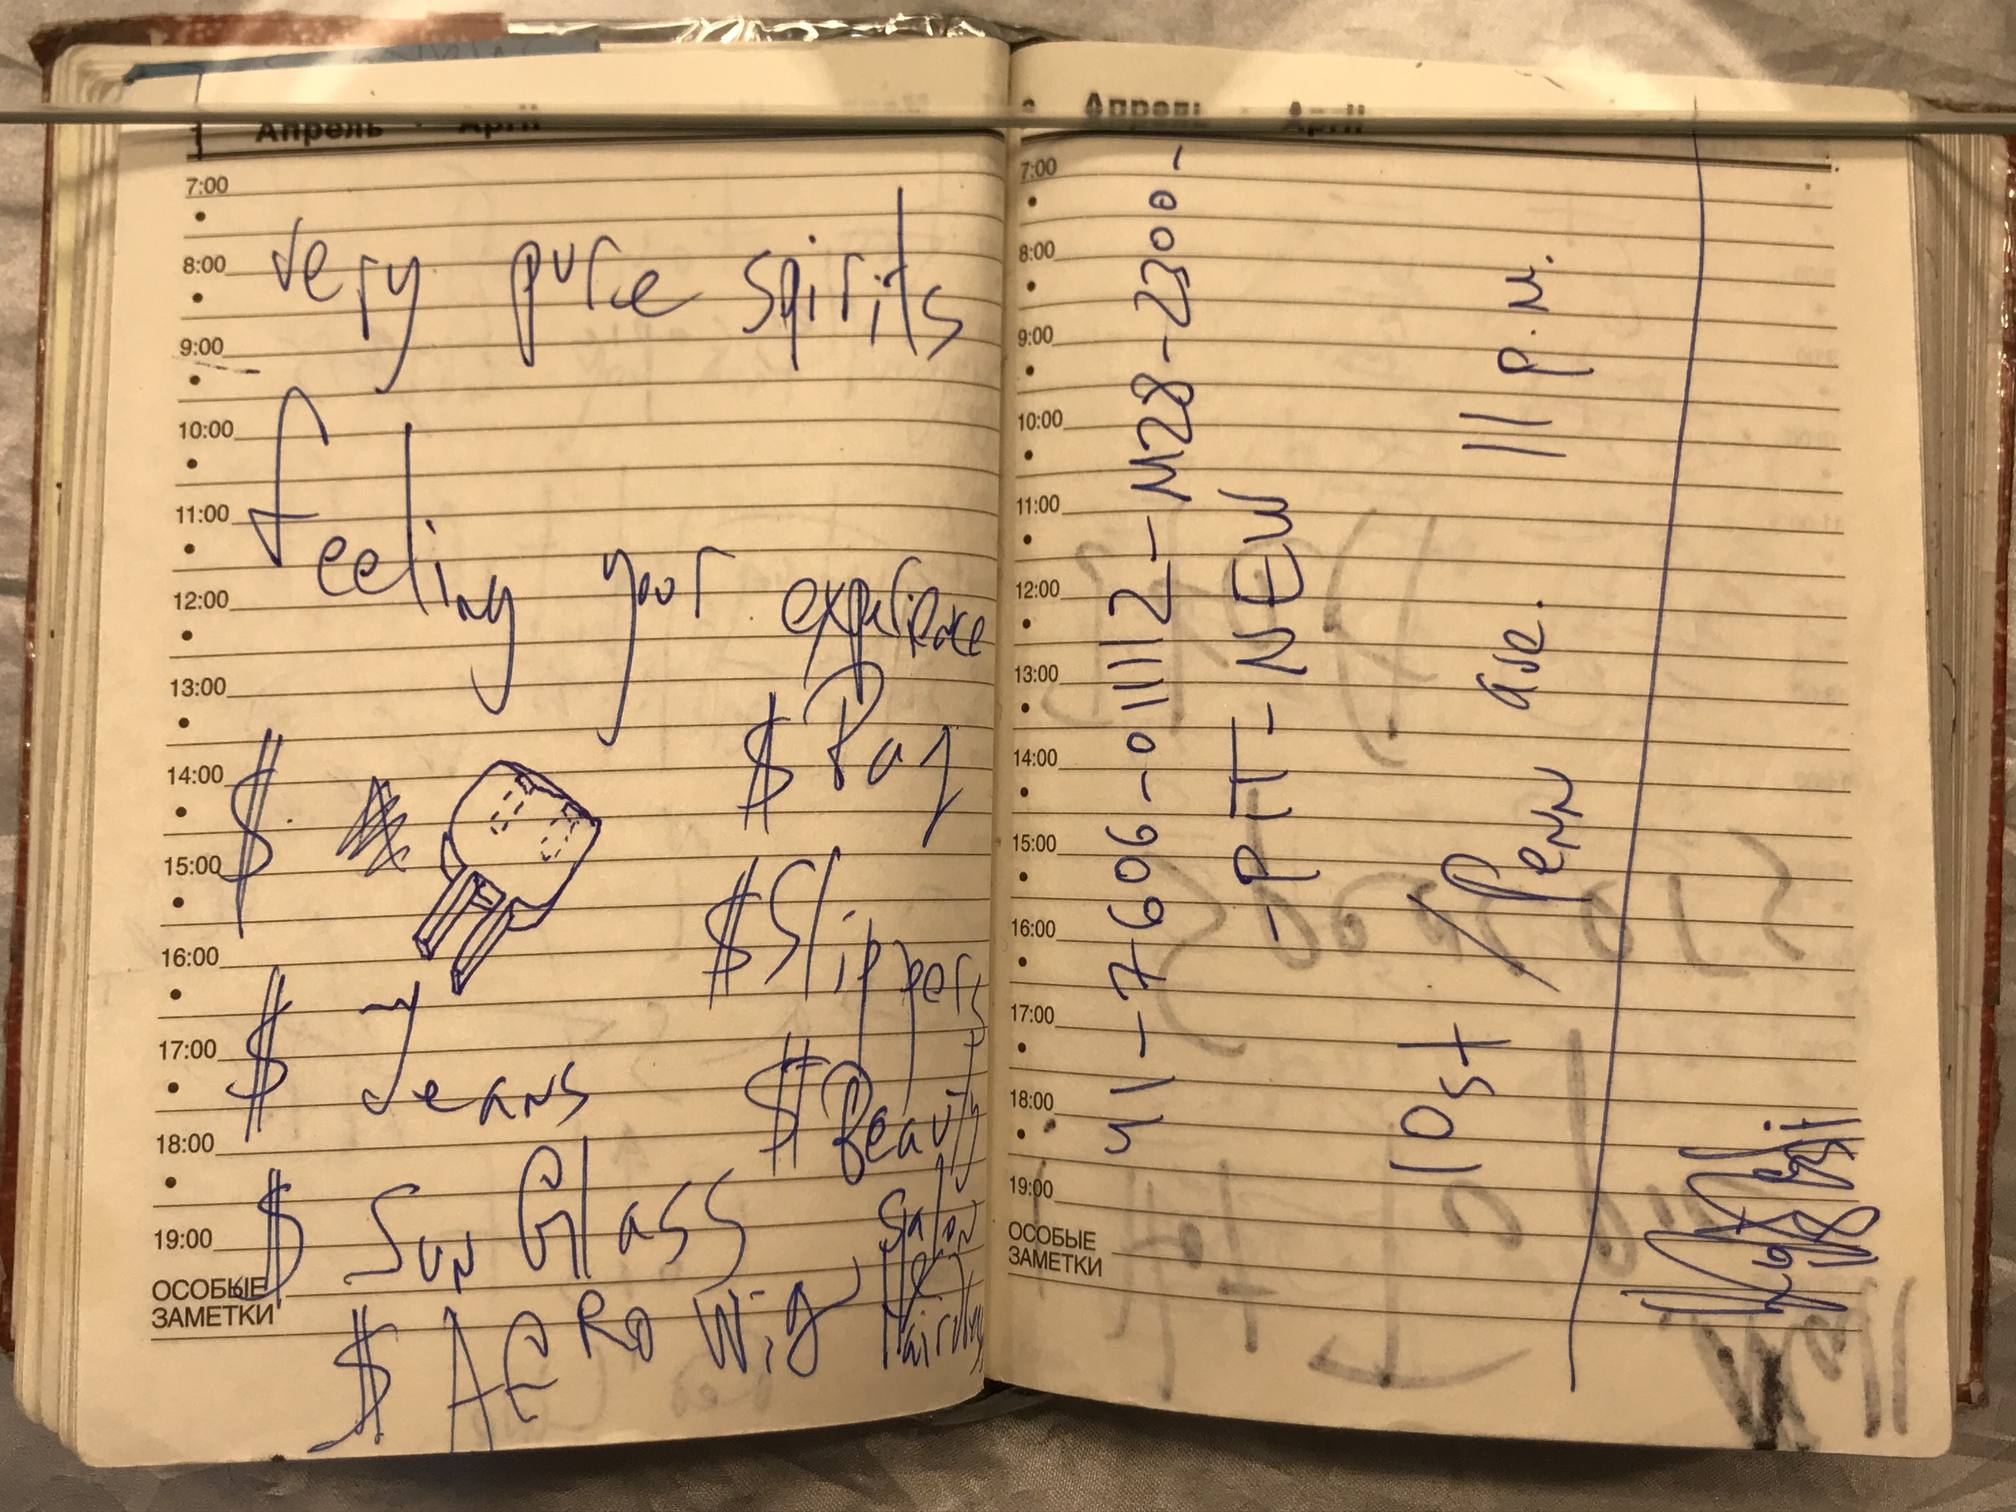 Апрель · April
7:00
8:00
9:00
10:00
11:00
12:00
13:00
14:00
15:00
16:00
17:00
18:00
19:00
ОСОБЫЕ
ЗАМЕТКИ
very pure spirits
feeling your experience
$
$ Jeans
$ Sun Glass
$ AERO Wig
$ Pay
$ Slippers
$ Beauty
Salon
Апрель · April
7:00
8:00
9:00
10:00
11:00
12:00
13:00
14:00
15:00
16:00
17:00
18:00
19:00
ОСОБЫЕ
ЗАМЕТКИ
41-7-606-01112-M28-2300-
-PIT-NEW
10st / Penn ave. 11 p.m.